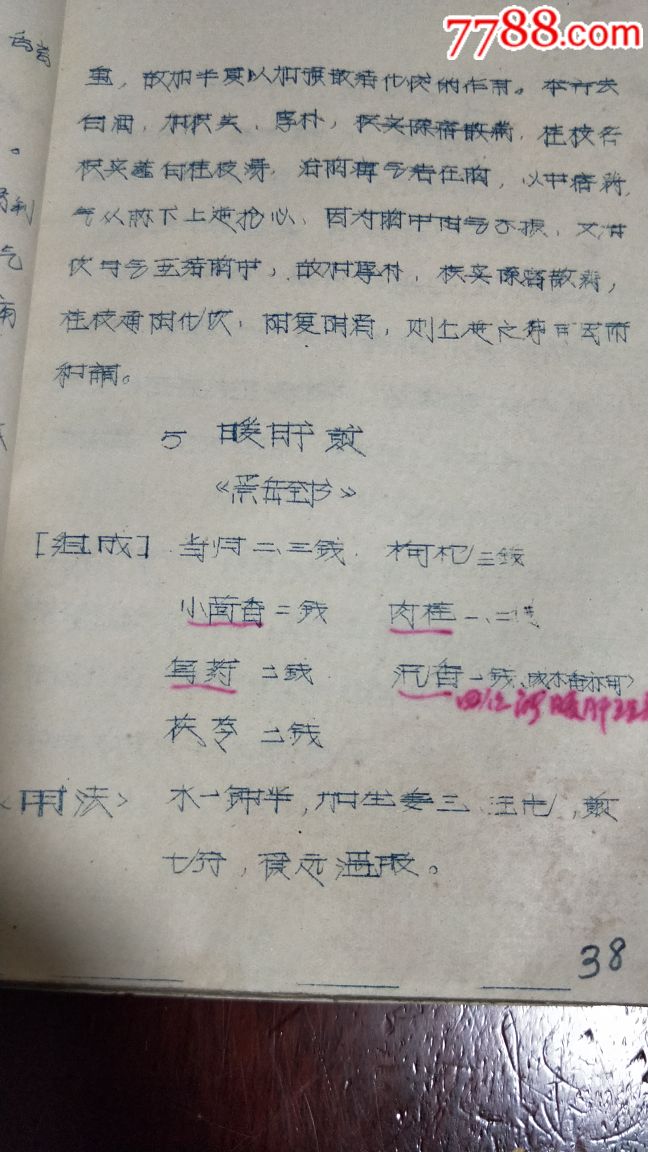 7788.com
重，故加半夏以加强散结化饮的作用。本方去
白酒，加枳实、厚朴，枳实除痞散满，桂枝名
枳实薤白桂枝汤，治胸痹气结在胸，心中痞满，
气从胁下上逆抢心，因为胸中阳气不振，又
饮与气互结胸中，故加厚朴，枳实除痞散满，
桂枝通阳化饮，阳复阴消，则上逆之势可
和调。
5 暖肝煎
《景岳全书》
[组成] 当归二、三钱 枸杞三钱
小茴香二钱 肉桂一、二钱
乌药二钱 沉香一钱（或木香亦可）
暖肝
茯苓二钱
<用法> 水一钟半，加生姜三、五片，煎
七分，食远温服。
38